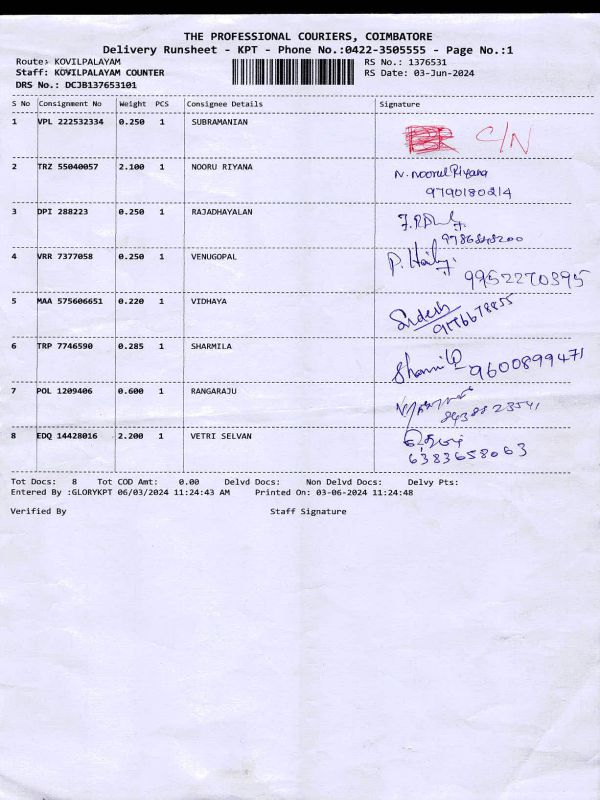 THE PROFESSIONAL COURIERS, COIMBATORE
Delivery Runsheet - KPT - Phone No.:0422-3505555 - Page No.:1
Route: KOVILPALAYAM RS No.: 1376531
Staff: KOVILPALAYAM COUNTER RS Date: 03-Jun-2024
DRS No.: DCJB137653101
S No Consignment No Weight PCS Consignee Details Signature
1 VPL 222532334 0.250 1 SUBRAMANIAN C/N
2 TRZ 55040057 2.100 1 NOORU RIYANA N. Noorul Riyana
9790180214
3 DPI 288223 0.250 1 RAJADHAYALAN
4 VRR 7377058 0.250 1 VENUGOPAL 9952270395
5 MAA 575606651 0.220 1 VIDHAYA
6 TRP 7746590 0.285 1 SHARMILA 9600899471
7 POL 1209406 0.600 1 RANGARAJU
8438823541
8 EDQ 14428016 2.200 1 VETRI SELVAN
6383658063
Tot Docs: 8 Tot COD Amt: 0.00 Delvd Docs: Non Delvd Docs: Delvy Pts:
Entered By :GLORYKPT 06/03/2024 11:24:43 AM Printed On: 03-06-2024 11:24:48
Verified By Staff Signature